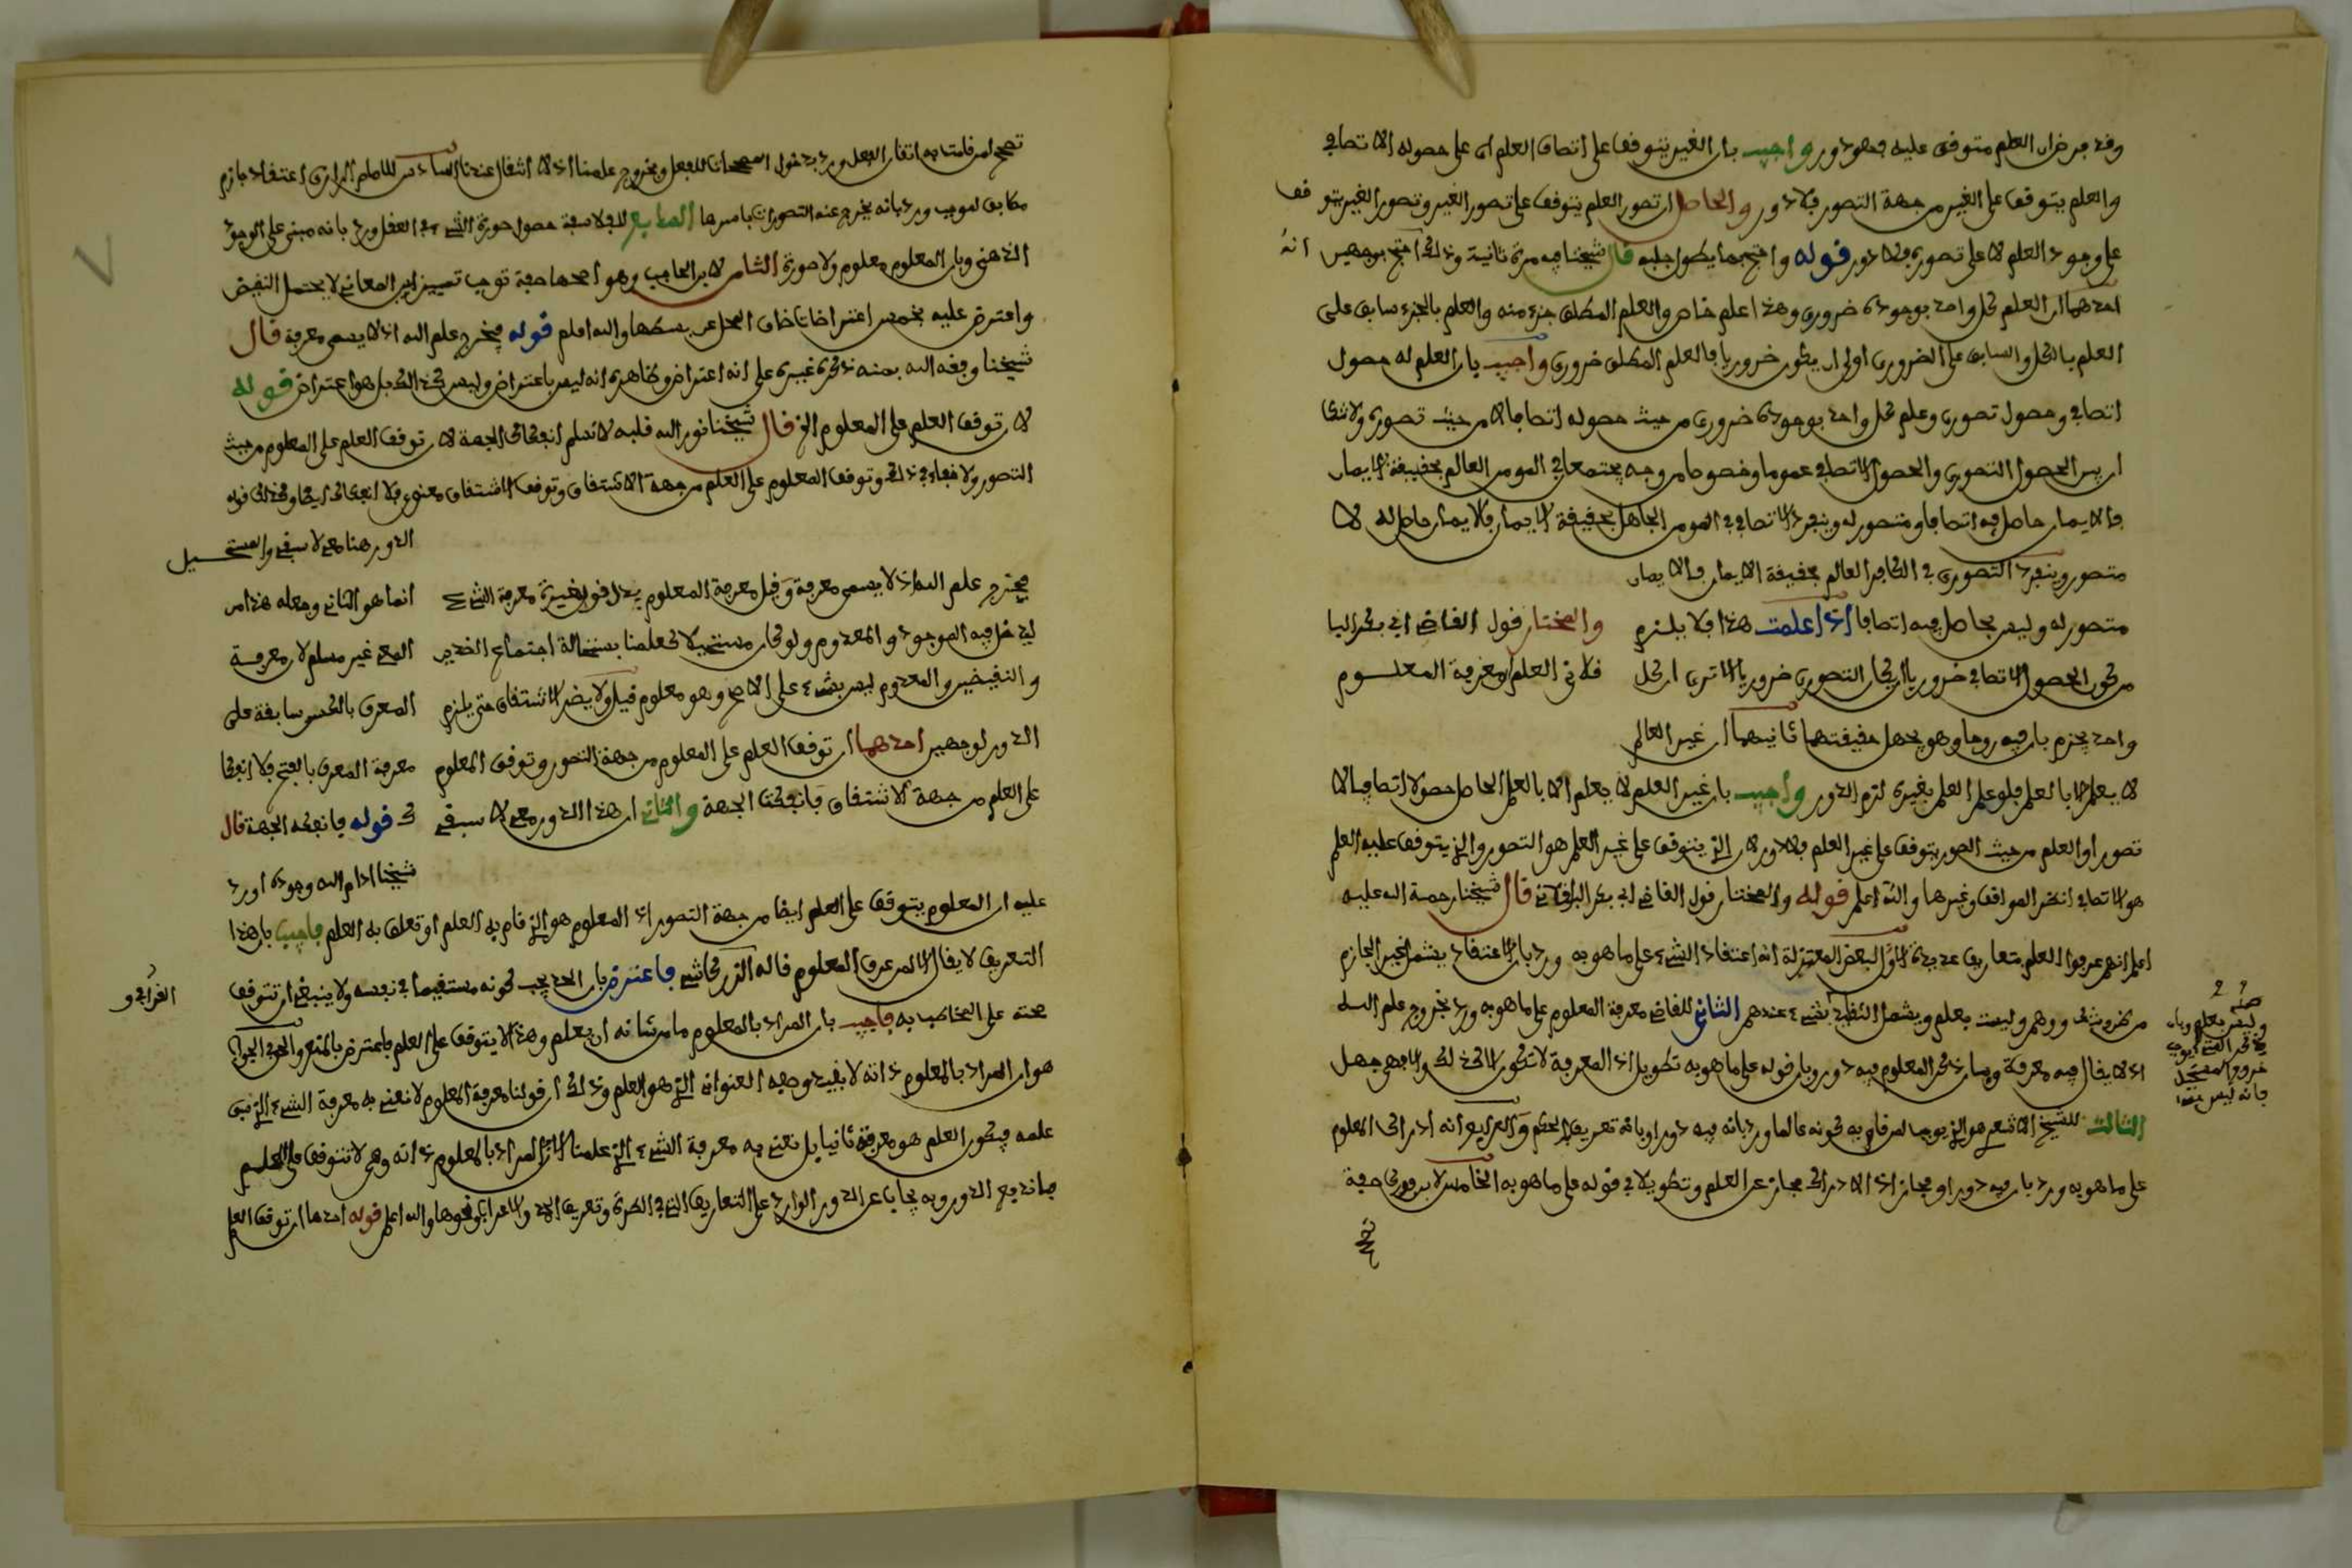 وقد فرض ان العلم متوقف عليه فهو دور واجيب بان الغير يتوقف على اتصاف العلم اى على حصوله الاتصافي
والعلم يتوقف على الغير من جهة التصور فلا دور والحاصل ان تصور العلم يتوقف على تصور الغير وتصور الغير يتوقف
على وجود العلم لا على تصوره فلا دور قوله واحتج بما يطول جلبه قال شيخنا فيه مرة ثانية وذلك انه احتج بوجهين
احدهما ان العلم كل واحد بوجوده ضروري وهذا علم خاص والعلم المطلق جزء منه والعلم بالجزء سابق على
العلم بالكل والسابق على الضروري اولى ان يكون ضروريا فالعلم المطلق ضروري واجيب بان العلم له حصول
اتصافي وحصول تصوري وعلم كل واحد بوجوده ضروري من حيث حصوله اتصافا لا من حيث تصوره ولا شك
ان بين الحصول التصوري والحصول الاتصافي عموما وخصوصا من وجه يجتمعان في المومن العالم بحقيقة الايمان
فالايمان حاصل فيه اتصافا ومتصور له وينفرد الاتصافي في المومن الجاهل بحقيقة الايمان فالايمان حاصل له لا
متصور وينفرد التصوري في الكافر العالم بحقيقة الايمان فالايمان
متصور له وليس بحاصل فيه اتصافا اذا علمت هذا فلا يلزم
والمختار قول القاضي ابي بكر البا
من كون الحصول الاتصافي ضروريا ان يكون التصوري ضروريا الا ترى ان كل
قلاني العلم معرفة المعلوم
واحد يجزم بان فيه روحا وهو يجهل حقيقتها ثانيهما ان غير العالم
لا يعلم الا بالعلم فلو علم العلم بغيره لزم الدور واجيب بان غير العلم لا يعلم الا بالعلم الحاصل حصولا اتصافيا لا
تصورا والعلم من حيث التصور يتوقف على غير العلم فلا دور لان الذي يتوقف على غير العلم هو التصور والذي يتوقف عليه العلم
هو الاتصافي انظر المواقف وغيرها والله اعلم قوله والمختار قول القاضي ابي بكر الباقلاني قال شيخنا رحمة الله عليه
اعلم انهم عرفوا العلم بتعاريف عديدة الاول لبعض المعتزلة انه اعتقاد الشيء على ما هو به ورد بان الاعتقاد يشمل غير الجازم
من ظن وشك ووهم وليست بعلم ويشمل التقليد بشيء عندهم الثاني للقاضي معرفة المعلوم على ما هو به ورد بخروج علم الله
اذ لا يقال فيه معرفة وبان ذكر المعلوم فيه دور وبان قوله على ما هو به تطويل اذ المعرفة لا تكون الا كذلك والا فهي جهل
الثالث للشيخ الاشعري هو الذي يوجب لمن قام به كونه عالما ورد بانه فيه دورا وبانه تعريف بالحكم والرابع انه ادراك المعلوم
على ما هو به ورد بان فيه دورا ومجازا اذ الادراك مجاز عن العلم وتطويلا في قوله على ما هو به الخامس لابن فورك صفة
تصح
تصح لمن قامت به اتقان الفعل ورد بدخول الصحة للفعل وبخروج علمنا اذ لا اتقان عندنا السادس للامام الرازي اعتقاد جازم
مطابق لموجب ورد بانه يخرج عنه التصورات باسرها السابع للفلاسفة حصول صورة الشيء في العقل ورد بانه مبني على الوجود
الذهني وبان المعلوم معلوم ولا صورة الثامن لابن الحاجب وهو اصحها صفة توجب تمييزا بين المعاني لا يحتمل النقيض
واعترض عليه بخمس اعتراضات ضاق المحل عن بسطها والله اعلم قوله فيخرج علم الله اذ لا يسمى معرفة قال
شيخنا وفقه الله بمنه ذكره غيره على انه اعتراض وظاهره انه ليس باعتراض وليس كذلك بل هو اعتراض قوله
لان توقف العلم على المعلوم الخ قال شيخنا نور الله قلبه لا نسلم انفكاك الجهة لان توقف العلم على المعلوم من حيث
التصور ولا خفاء في ذلك وتوقف المعلوم على العلم من جهة الاشتقاق وتوقف الاشتقاق معنوي فلا انفكاك ايضا وكذلك قوله
الدور هنا معي لا سبقي والمستحيل
فيخرج علم الله اذ لا يسمى معرفة وقيل معرفة المعلوم يدل قول غيره معرفة الشيء
انما هو الثاني وجعله هذا من
ليدخل فيه الموجود والمعدوم ولو كان مستحيلا كعلمنا باستحالة اجتماع الضدين
المعي غير مسلم لان معرفة
والنقيضين والمعدوم ليس بشيء على الاصح وهو معلوم قيل ولا يضر الاشتقاق حتى يلزم
المعرف بالكسر سابقة على
الدور لوجهين احدهما ان توقف العلم على المعلوم من جهة التصور وتوقف المعلوم
معرفة المعرف بالفتح فلا انفكا
على العلم من جهة الاشتقاق فانفكت الجهة والثاني ان هذا الدور معي لا سبقي
ك قوله فانفكت الجهة قال
شيخنا ادام الله وجوده اورد
عليه ان المعلوم يتوقف على العلم ايضا من جهة التصور اذ المعلوم هو الذي قام به العلم او تعلق به العلم فاجيب بان هذا
التعريف لا يقال الا لمن عرف المعلوم قاله الزركاشي فاعترض بان الحد يجب كونه مستقيما في نفسه ولا ينبغي ان تتوقف
صحته على المخاطب به فاجيب بان المراد بالمعلوم ما من شانه ان يعلم وهذا لا يتوقف على العلم فاعترض بالمنع والحق في الجواب
هو ان المراد بالمعلوم ذاته لا بقيد وصفه العنواني الذي هو العلم وذلك ان قولنا معرفة المعلوم لا نعني به معرفة الشيء الذي سبق
علمه فيكون العلم هو معرفة ثانيا بل نعني به معرفة الشيء الذي علمنا الان اذ المراد بالمعلوم ذاته وهي لا تتوقف على العلم
فاندفع الدور وبه يجاب عن الدور الوارد على التعاريف التي في الطرة وتعريف الامر والاعراب ونحوها والله اعلم قوله احدهما ان توقف العلم